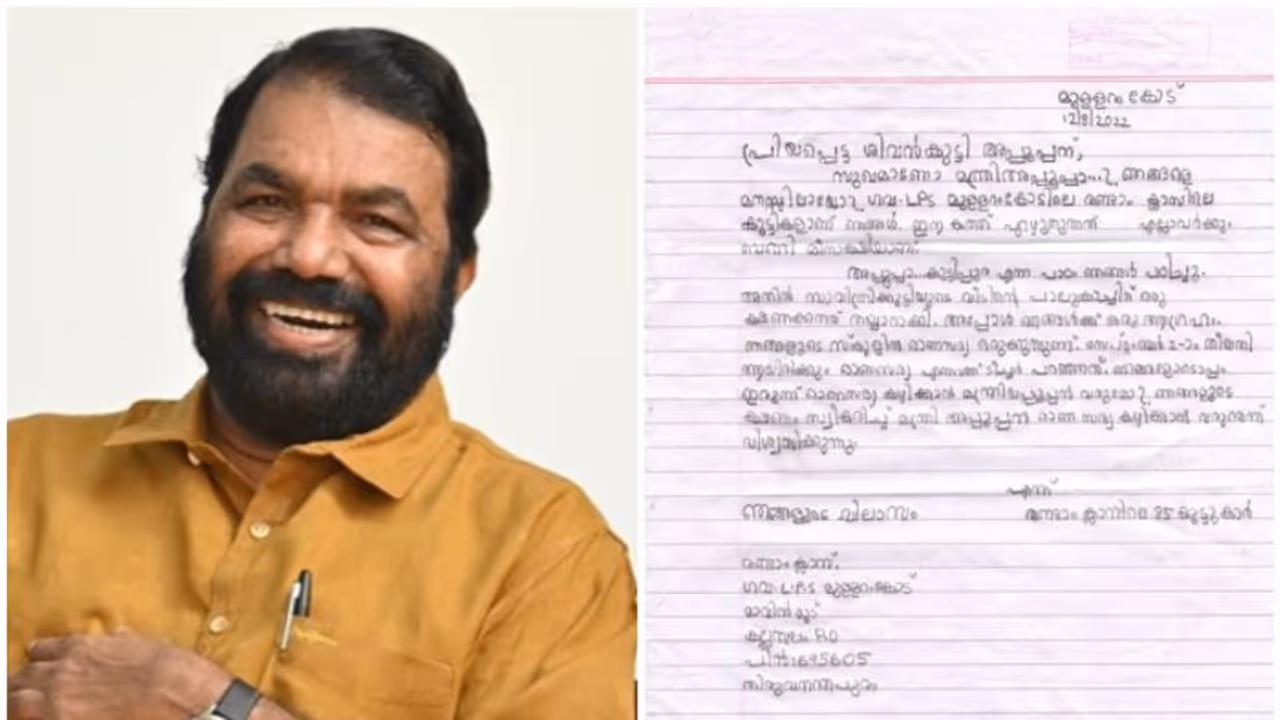 മുള്ളറംകോട്
12/8/2022
പ്രിയപ്പെട്ട ശിവൻകുട്ടി അപ്പൂപ്പന്,
സുഖമാണോ മന്ത്രിഅപ്പൂപ്പാ...? ഞങ്ങളെ
മനസ്സിലായോ? ഗവ: L.P.S മുള്ളറംകോടിലെ രണ്ടാം ക്ലാസിലെ
കുട്ടികളാണ് ഞങ്ങൾ. ഈ കത്ത് എഴുതുന്നത് എല്ലാവർക്കും
വേണ്ടി മീനാക്ഷിയാണ്.
അപ്പൂപ്പാ... കുട്ടിപ്പുര എന്ന പാഠം ഞങ്ങൾ പഠിച്ചു.
അതിൽ സാവിത്രിക്കുട്ടിയുടെ വീടിന്റെ പാലുകാച്ചിന് ഒരു
ക്ഷണക്കത്ത് തയ്യാറാക്കി. അപ്പോൾ ഞങ്ങൾക്ക് ഒരു ആഗ്രഹം.
ഞങ്ങളുടെ സ്കൂളിൽ ഓണസദ്യ ഒരുക്കുന്നുണ്ട്. സെപ്റ്റംബർ 2-ാം തീയതി
ആയിരിക്കും ഓണസദ്യ എന്നാണ് ടീച്ചർ പറഞ്ഞത്. ഞങ്ങളോടൊപ്പം
ഇരുന്ന് ഓണസദ്യ കഴിക്കാൻ മന്ത്രിഅപ്പൂപ്പൻ വരുമോ? ഞങ്ങളുടെ
ക്ഷണം സ്വീകരിച്ച് മന്ത്രി അപ്പൂപ്പൻ ഓണ സദ്യ കഴിക്കാൻ വരുമെന്ന്
വിശ്വസിക്കുന്നു.
എന്ന്
ഞങ്ങളുടെ വിലാസം രണ്ടാം ക്ലാസിലെ 85 കൂട്ടുകാർ
രണ്ടാം ക്ലാസ്.
ഗവ: L.P.S മുള്ളറംകോട്
മാവിൻമൂട്
കല്ലമ്പലം P.O
പിൻ:695605
തിരുവനന്തപുരം